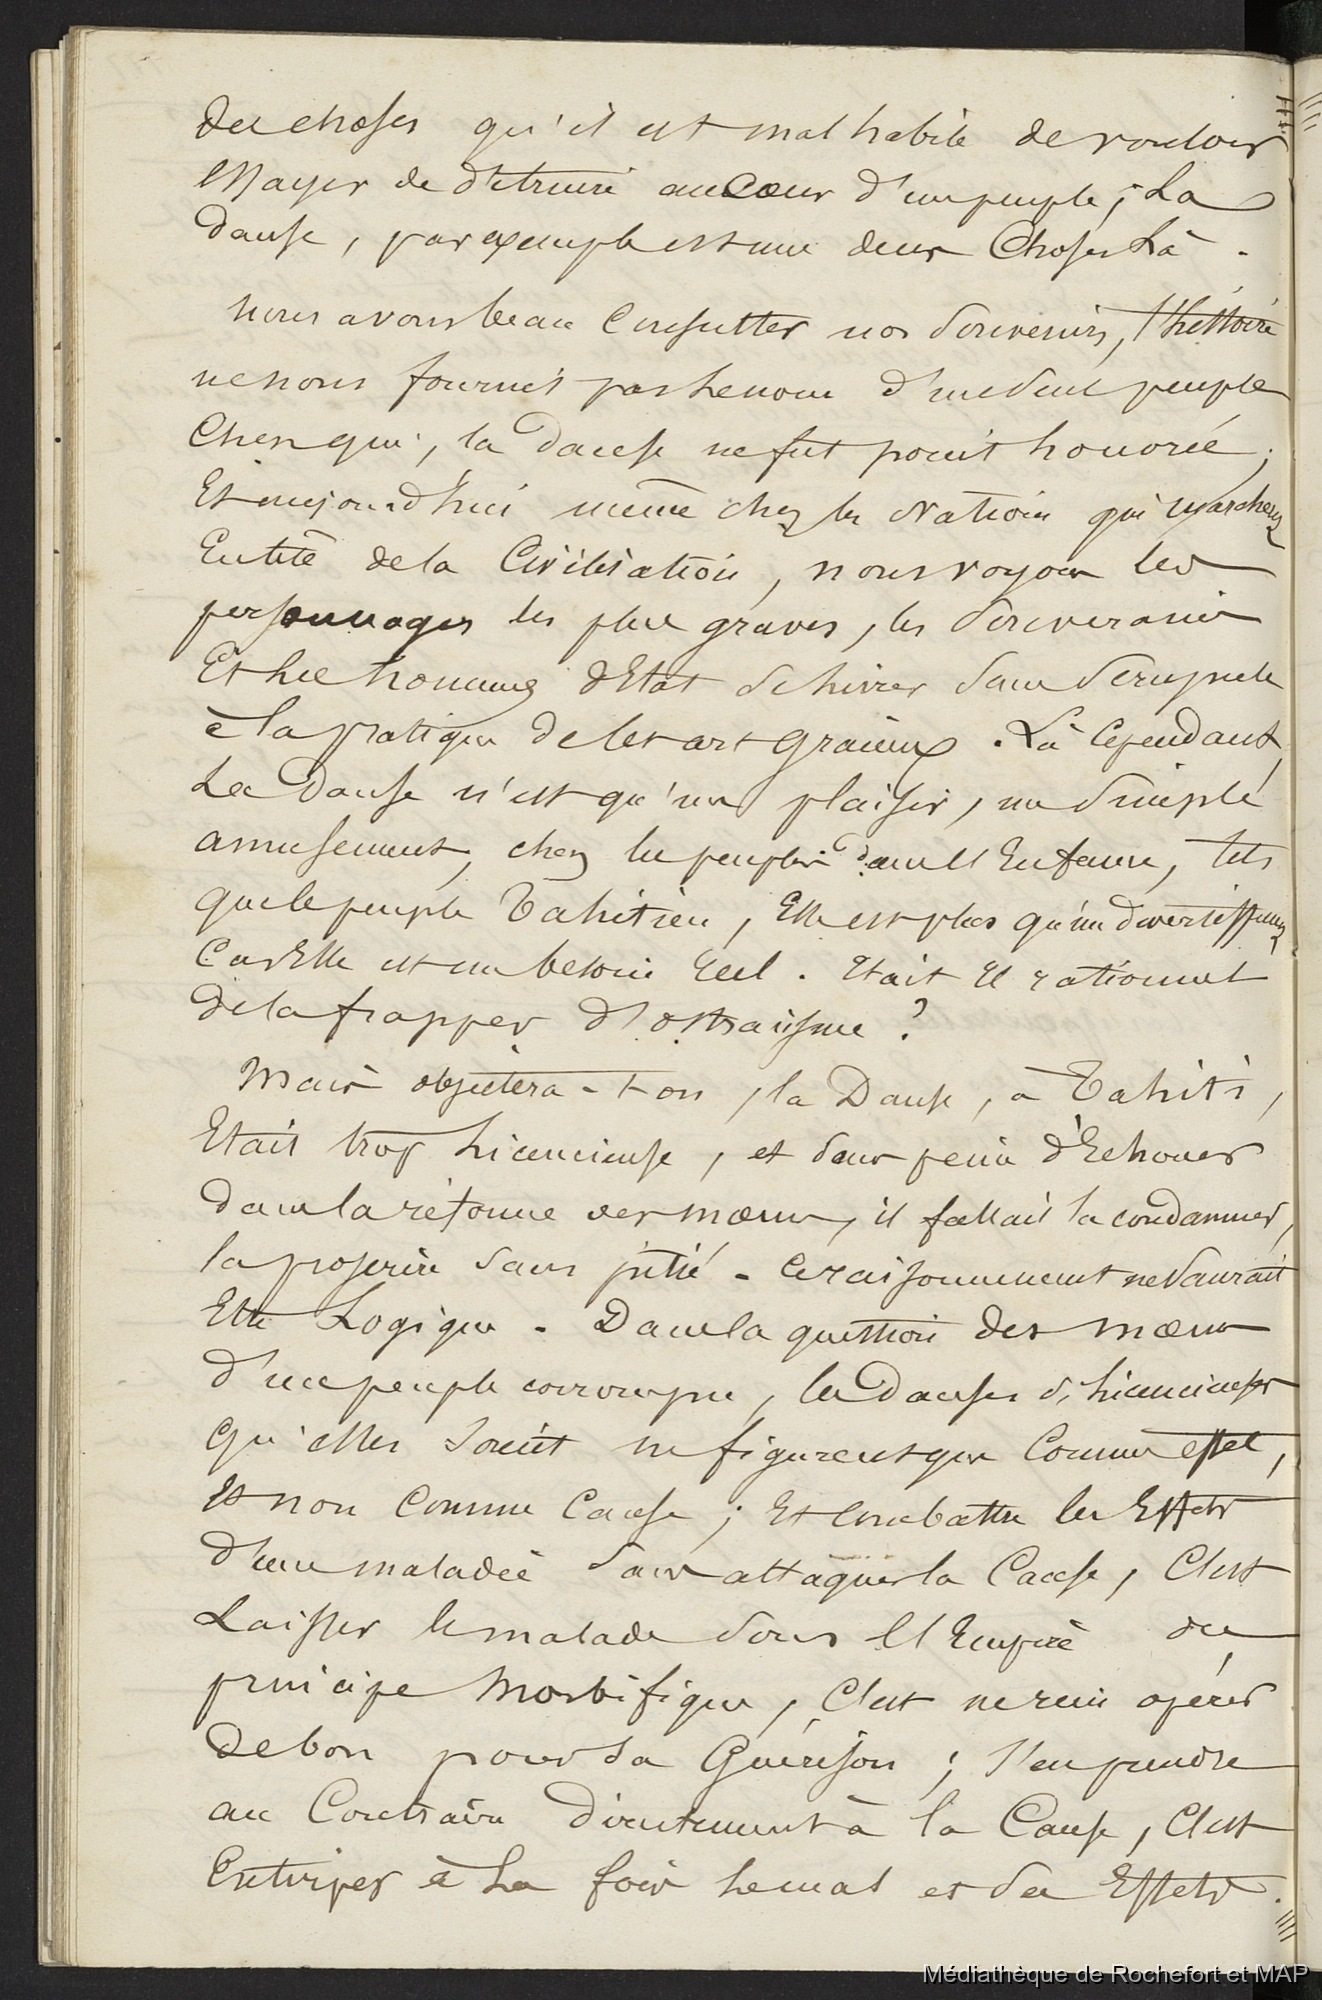 des choses qu'il est malhabile de vouloir
essayer de détruire au Cœur d'un peuple ; La
danse, par exemple est une de ces Choses Là.
Nous avons beau Consulter nos Souvenirs, l'histoire
ne nous fournit pas Le nom d'un Seul peuple
Chez qui, la danse ne fut point honorée ;
Et aujourd'hui même chez les Nations qui marchent
En tête de la Civilisation, nous voyons les
personnages les plus graves, les Souverains
Et Les hommes d'Etat se livrer Sans Scrupule
à la pratique de Cet art gracieux. Là Cependant
La Danse n'est qu'un plaisir, un Simple
amusement, chez les peuples dans l'Enfance, tels
que le peuple Tahitien, Elle est plus qu'un divertissement
Car Elle est un besoin réel. Etait Il rationnel
de la frapper d'ostracisme ?
Mais objectera-t-on, la Danse, à Tahiti,
Etait trop Licencieuse, et Sous peine d'Echouer
dans la réforme des mœurs, il fallait la condamner,
la proscrire Sans pitié - Ce raisonnement ne Saurait
Etre Logique - Dans la question des mœurs
d'un peuple corrompu, les Danses Si Licencieuses
qu'elles Soient ne figurent que Comme effet,
Et non Comme Cause ; Et Combattre les Effets
d'une maladie Sans attaquer la Cause, C'est
Laisser le malade Sous l'Empire du
principe Morbifique, C'est ne rien opérer
de bon pour Sa Guérison ; S'en prendre
au Contraire directement à la Cause, C'est
Extirper à La fois Le mal et Ses Effets.
Médiathèque de Rochefort et MAP